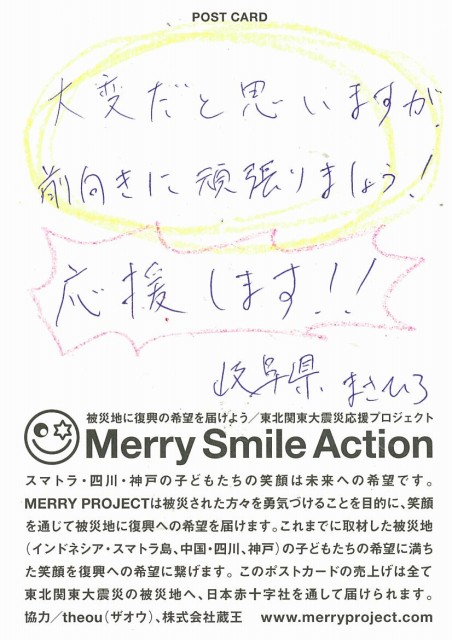 POST CARD
大変だと思いますが
前向きに頑張りましょう!
応援します!!
岐阜県 まさひろ
被災地に復興の希望を届けよう／東北関東大震災応援プロジェクト
Merry Smile Action
スマトラ・四川・神戸の子どもたちの笑顔は未来への希望です。
MERRY PROJECTは被災された方々を勇気づけることを目的に、笑顔
を通じて被災地に復興への希望を届けます。これまでに取材した被災地
（インドネシア・スマトラ島、中国・四川、神戸）の子どもたちの希望に満ち
た笑顔を復興への希望に繋げます。このポストカードの売上げは全て
東北関東大震災の被災地へ、日本赤十字社を通して届けられます。
協力／theou（ザオウ）、株式会社蔵王 www.merryproject.com